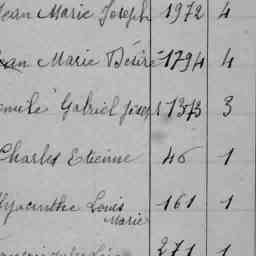 Jean Marie Joseph 1972 4
Jean Marie Désiré 1794 4
Gabriel Joseph 1373 3
Charles Etienne 46 1
Hyacinthe Louis 161 1
Marie
271 1